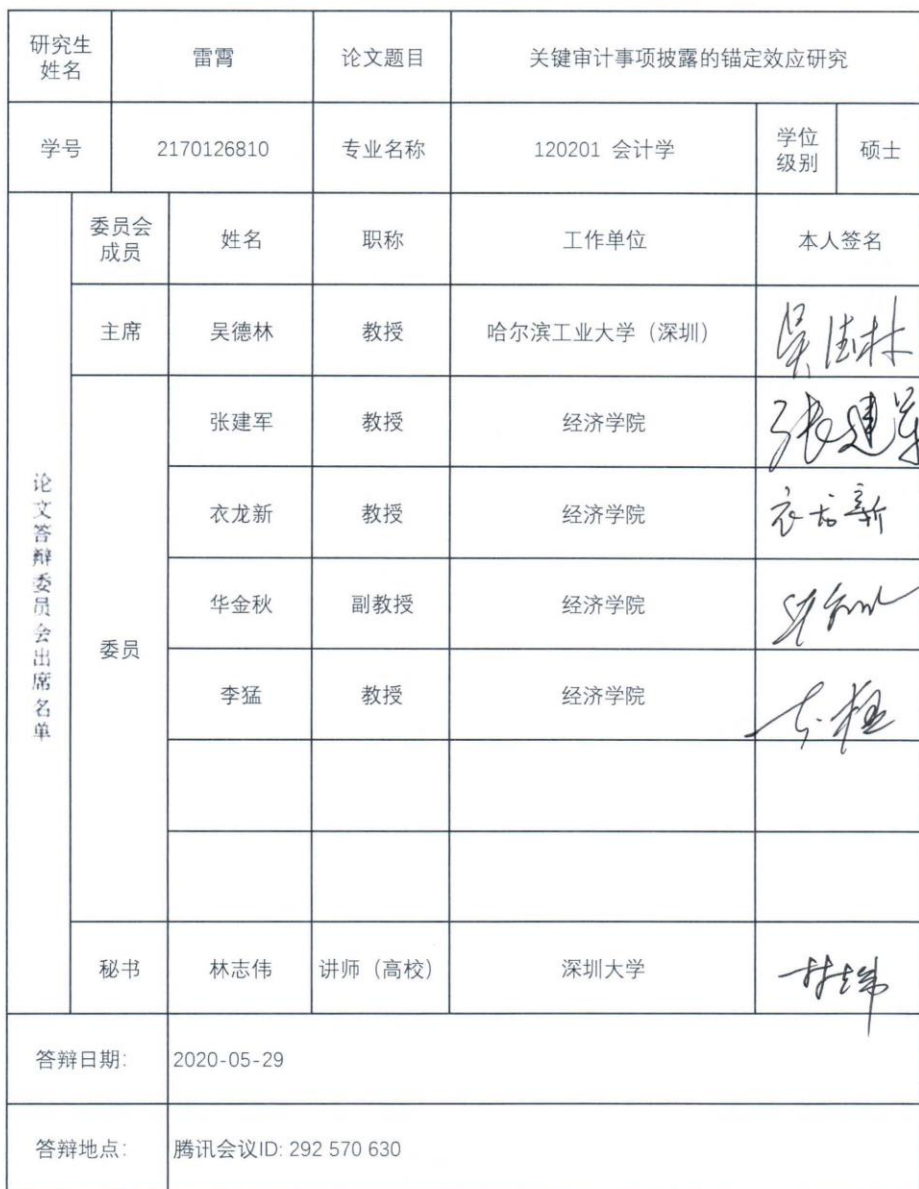 研究生
姓名
雷霄
论文题目
关键审计事项披露的锚定效应研究
学号
2170126810
专业名称
120201 会计学
学位
级别
硕士
论文答辩委员会出席名单
委员会
成员
姓名
职称
工作单位
本人签名
主席
吴德林
教授
哈尔滨工业大学（深圳）
吴德林
委员
张建军
教授
经济学院
张建军
衣龙新
教授
经济学院
衣龙新
华金秋
副教授
经济学院
李猛
教授
经济学院
秘书
林志伟
讲师（高校）
深圳大学
林志伟
答辩日期:
2020-05-29
答辩地点:
腾讯会议ID: 292 570 630